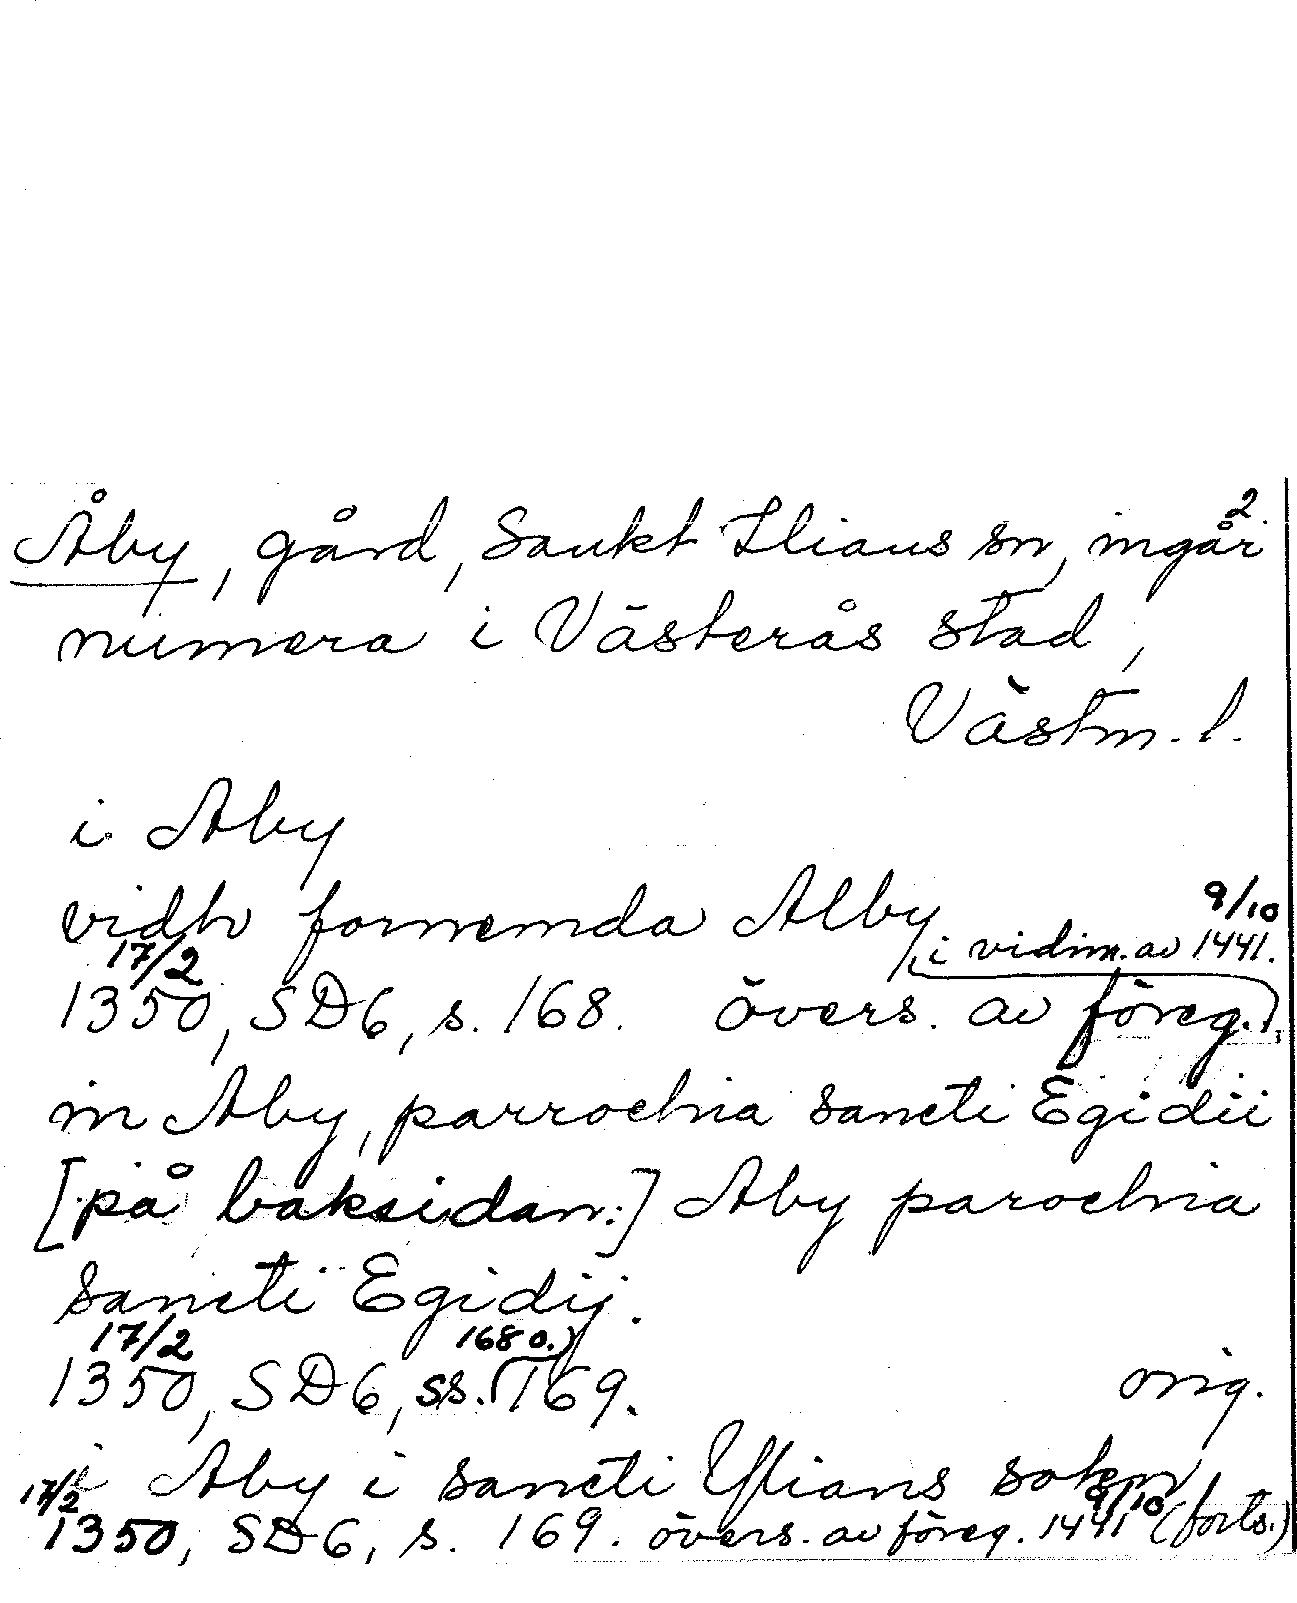 2.
Åby, gård, Sankt Ilians sn, ingår
numera i Västerås stad,
Västm. l.
i Aby
vidh fornemda Alby i vidim. av 9/10 1441.
17/2 1350, SD6, s. 168. övers. av föreg.
in Aby, parrochia sancti Egidii
[på baksidan:] Aby parochia
sancti Egidij.
17/2 1350, SD6, ss. 168 o. 169. orig.
i Aby i sancti Ylians sokn
17/2 1350, SD6, s. 169. övers. av föreg. 9/10 1441 (forts.)